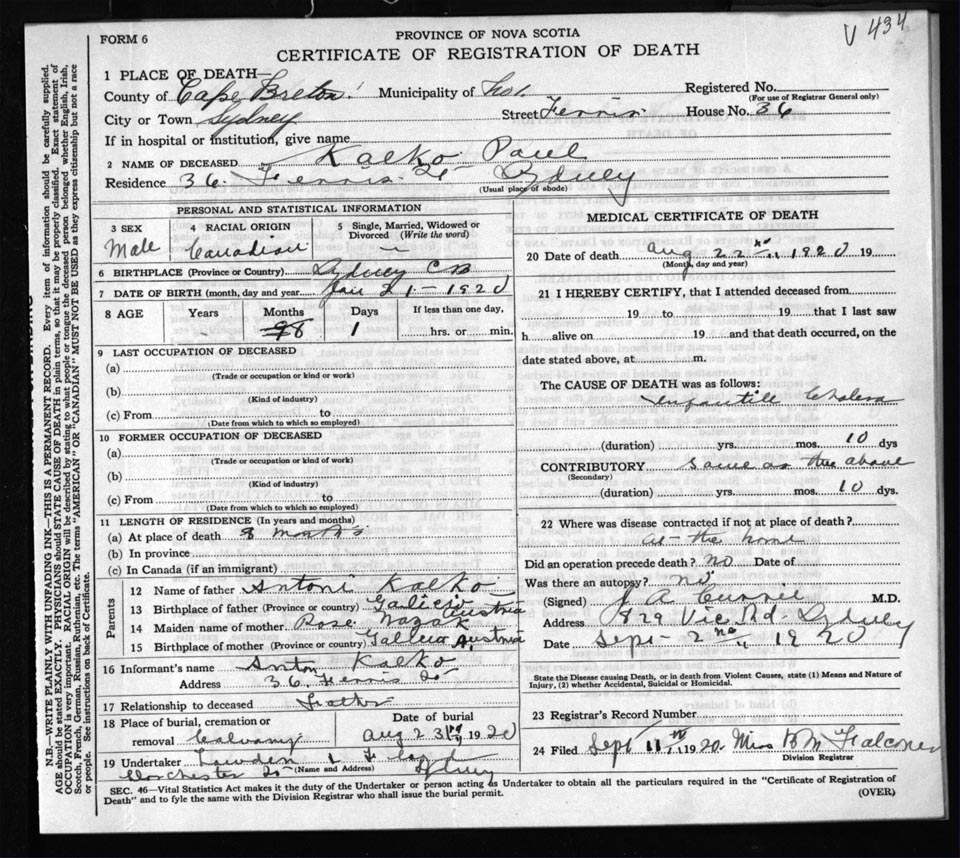 V 434
FORM 6
PROVINCE OF NOVA SCOTIA
CERTIFICATE OF REGISTRATION OF DEATH
1 PLACE OF DEATH—
County of Cape Breton Municipality of Registered No.
(For use of Registrar General only)
City or Town Sydney Street Ferris House No. 36
If in hospital or institution, give name
2 NAME OF DECEASED Kalko Paul
Residence 36 Ferris St Sydney
(Usual place of abode)
PERSONAL AND STATISTICAL INFORMATION
3 SEX
Male
4 RACIAL ORIGIN
Canadian
5 Single, Married, Widowed or Divorced (Write the word)
6 BIRTHPLACE (Province or Country) Sydney CB
7 DATE OF BIRTH (month, day and year) Jan 21 - 1920
8 AGE Years Months Days If less than one day,
8 1 hrs. or min.
9 LAST OCCUPATION OF DECEASED
(a)
(Trade or occupation or kind or work)
(b)
(Kind of industry)
(c) From to
(Date from which to which so employed)
10 FORMER OCCUPATION OF DECEASED
(a)
(Trade or occupation or kind of work)
(b)
(Kind of industry)
(c) From to
(Date from which to which so employed)
11 LENGTH OF RESIDENCE (In years and months)
(a) At place of death 8 months
(b) In province
(c) In Canada (if an immigrant)
Parents
12 Name of father Antoni Kalko
13 Birthplace of father (Province or country) Galicia Austria
14 Maiden name of mother Rose
15 Birthplace of mother (Province or country) Galicia Austria
16 Informant's name Anton Kalko
Address 36 Ferris St
17 Relationship to deceased Father
18 Place of burial, cremation or removal Calvary
Date of burial
Aug 23rd 1920
19 Undertaker Lowden
(Name and Address)
Dorchester St Sydney
MEDICAL CERTIFICATE OF DEATH
20 Date of death Aug 22nd 1920 19
(Month, day and year)
21 I HEREBY CERTIFY, that I attended deceased from
19 to 19 that I last saw
h alive on 19 and that death occurred, on the
date stated above, at m.
The CAUSE OF DEATH was as follows:
Infantile Cholera
(duration) yrs. mos. 10 dys
CONTRIBUTORY same as the above
(Secondary)
(duration) yrs. mos. 10 dys.
22 Where was disease contracted if not at place of death?
at the home
Did an operation precede death? No Date of
Was there an autopsy? no
(Signed) J A Currie M.D.
Address 829 Vic Rd. Sydney
Date Sept 2nd 1920
State the Disease causing Death, or in death from Violent Causes, state (1) Means and Nature of
Injury, (2) whether Accidental, Suicidal or Homicidal.
23 Registrar's Record Number
24 Filed Sept 11th 1920 Miss B M Falconer
Division Registrar
SEC. 46—Vital Statistics Act makes it the duty of the Undertaker or person acting as Undertaker to obtain all the particulars required in the "Certificate of Registration of
Death" and to fyle the same with the Division Registrar who shall issue the burial permit.
(OVER)
N.B.—WRITE PLAINLY WITH UNFADING INK—THIS IS A PERMANENT RECORD. Every item of information should be carefully supplied.
AGE should be stated EXACTLY. PHYSICIANS should STATE CAUSE OF DEATH in plain terms, so that it may be properly classified. Exact statement of
OCCUPATION is very important. RACIAL ORIGIN will be described by stating to what people or tongue the deceased person belonged whether English, Irish,
Scotch, French, German, Russian, Ruthenian, etc. The terms "AMERICAN" OR "CANADIAN" MUST NOT BE USED as they express citizenship but not a race
or people. See instructions on back of Certificate.